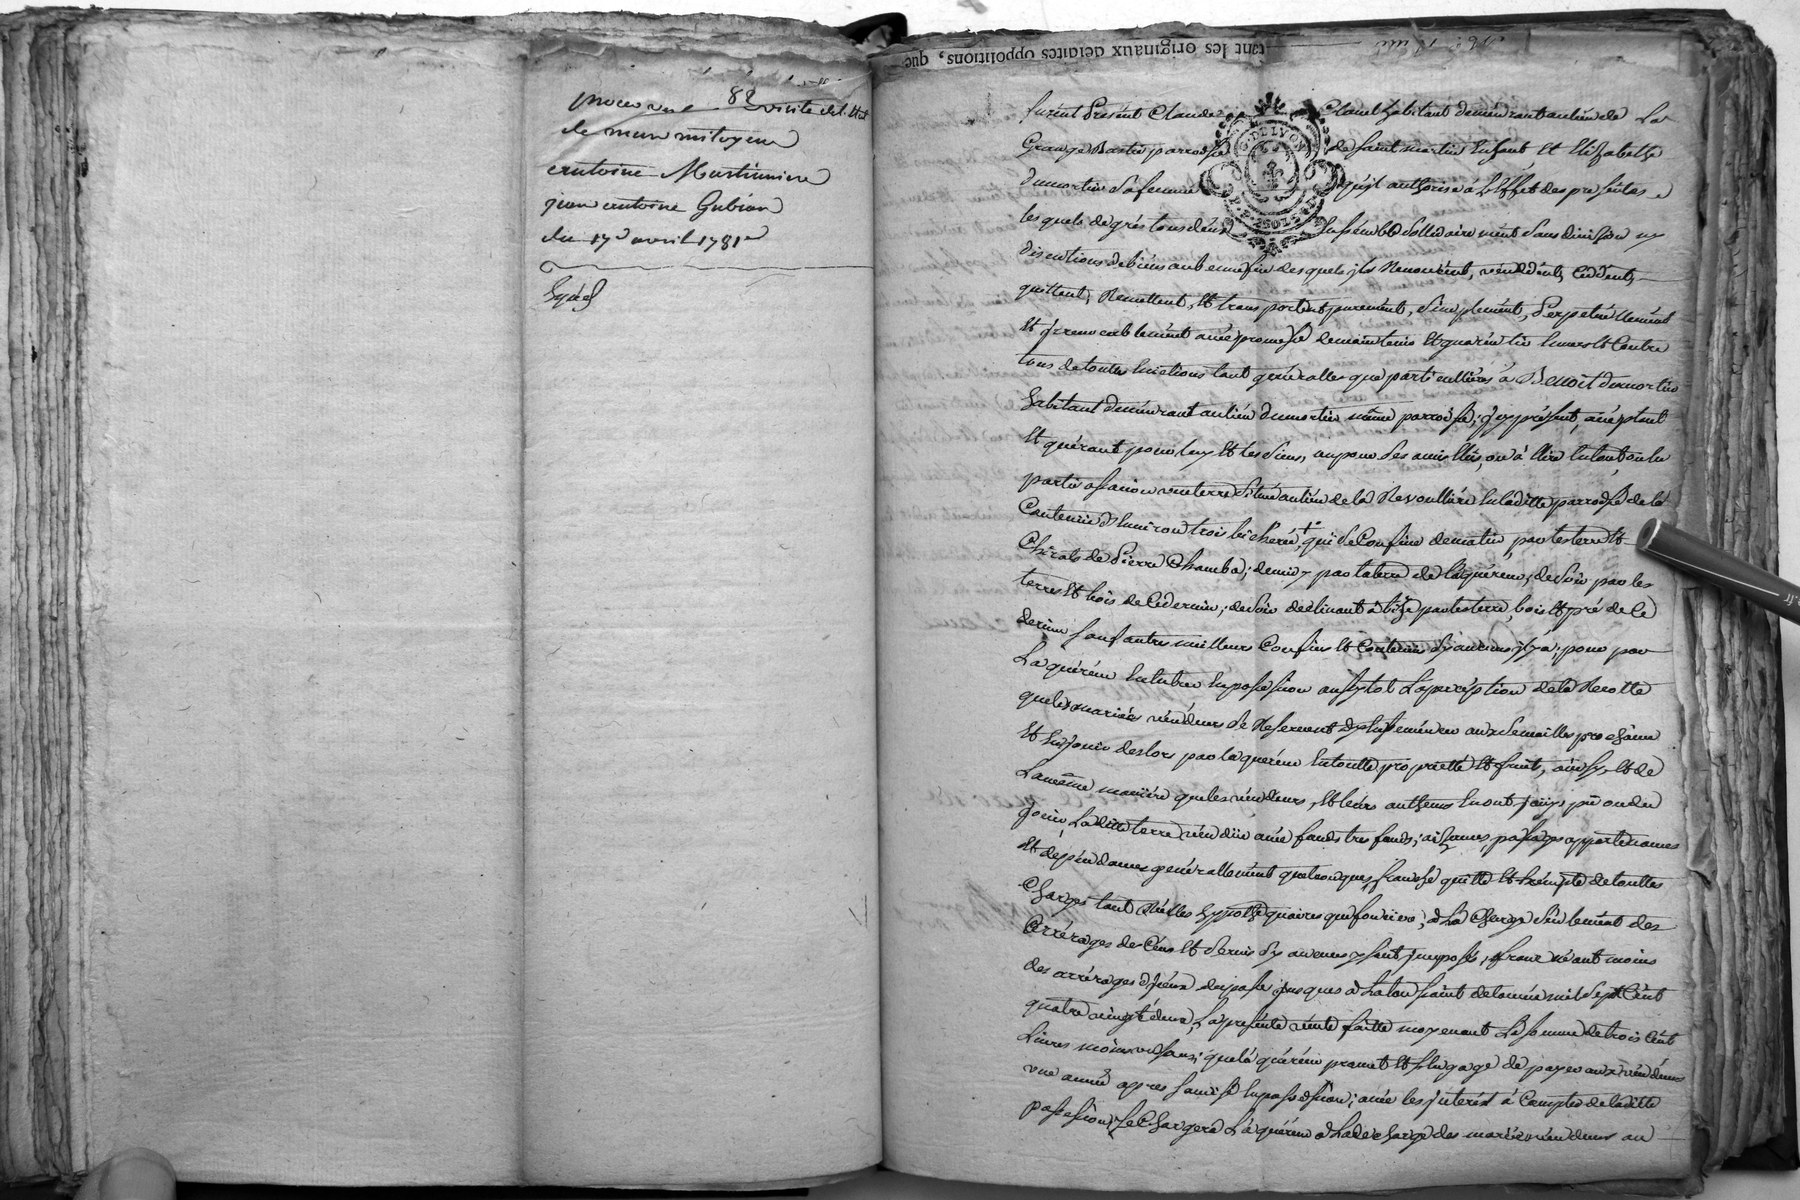 82
proces verbal visite de l'état
de murs mitoyens
antoine Martiniere
antoine Gubian
du 17e avril 1781
Expéd
tant les originaux desdites oppositions, que
G. DE LYON
furent Présent Claude Chaul habitant demeurant au lieu de La
Grange parroisse de saint martin Enfant et Elizabethe
dumortier Sa femme qu'il authorise à L'Effet des presentes
lesquels de grés tous deux Ensemble sollidairement sans division ny
discutions de biens au benneffice desquels ils Renoncent, vendent, Ceddent,
quittent, Remettent, et transportent purement, simplement, Perpetuellement
et irrevocablement avec promesse de maintenir et guarentir Envers et Contre
tous de touttes Evictions tant generalles que particullieres à Benoit dumortier
habitant demeurant au lieu dumortier même parroisse, icy présent, acceptant
et quérant pour luy et les siens, ou pour ses amis élus, ou à élire En tout, ou En
partie a scavoir une terre située au lieu de la Revoulliere En laditte parroisse de la
Contenue d'Environ trois bicherées, qui se Confine de matin, par les terre et
Chirats de Pierre Chamba; de midy par la terre de l'aquéreur; de soir par les
terres et bois de Ce dernier; de soir declinant à bize par les terre, bois et pré de Ce
dernier sauf autres meilleurs Confins et Contenue sy aucuns il y a, pour par
L'aquéreur Entrer En possession aussytot La perception de la Recolte
que les mariés vendeurs se Reservent aux semailles prochaine
et En jouir des lors par l'aquereur En toutte proprietté et fruit, ainsy, et de
La même maniere que les vendeurs, et leurs autheurs En ont jouys pû ou du
jouir, La ditte terre vendüe avec fonds tres fonds, aisances, passages appartenances
et dependances generallement quelconques, franche quitte et Exempte de touttes
Charges tant Réelles hypothequaires que fonciere; à La Charge seulement des
arrérages de Cens et servis sy aucuns y sont imposés, franc néant moins
des arrérages d'iceux du passé jusques à La toussaint de l'année mil sept Cent
quatre vingt deux, La presente vente faitte moyenant La somme de trois Cent
Livres que l'aquéreur promet et s'Engage de payer aux vendeurs
une année apres sa mise En possession; avec les interest à Compter de laditte
possession, se Chargera L'aquéreur à La decharge des mariés vendeurs au